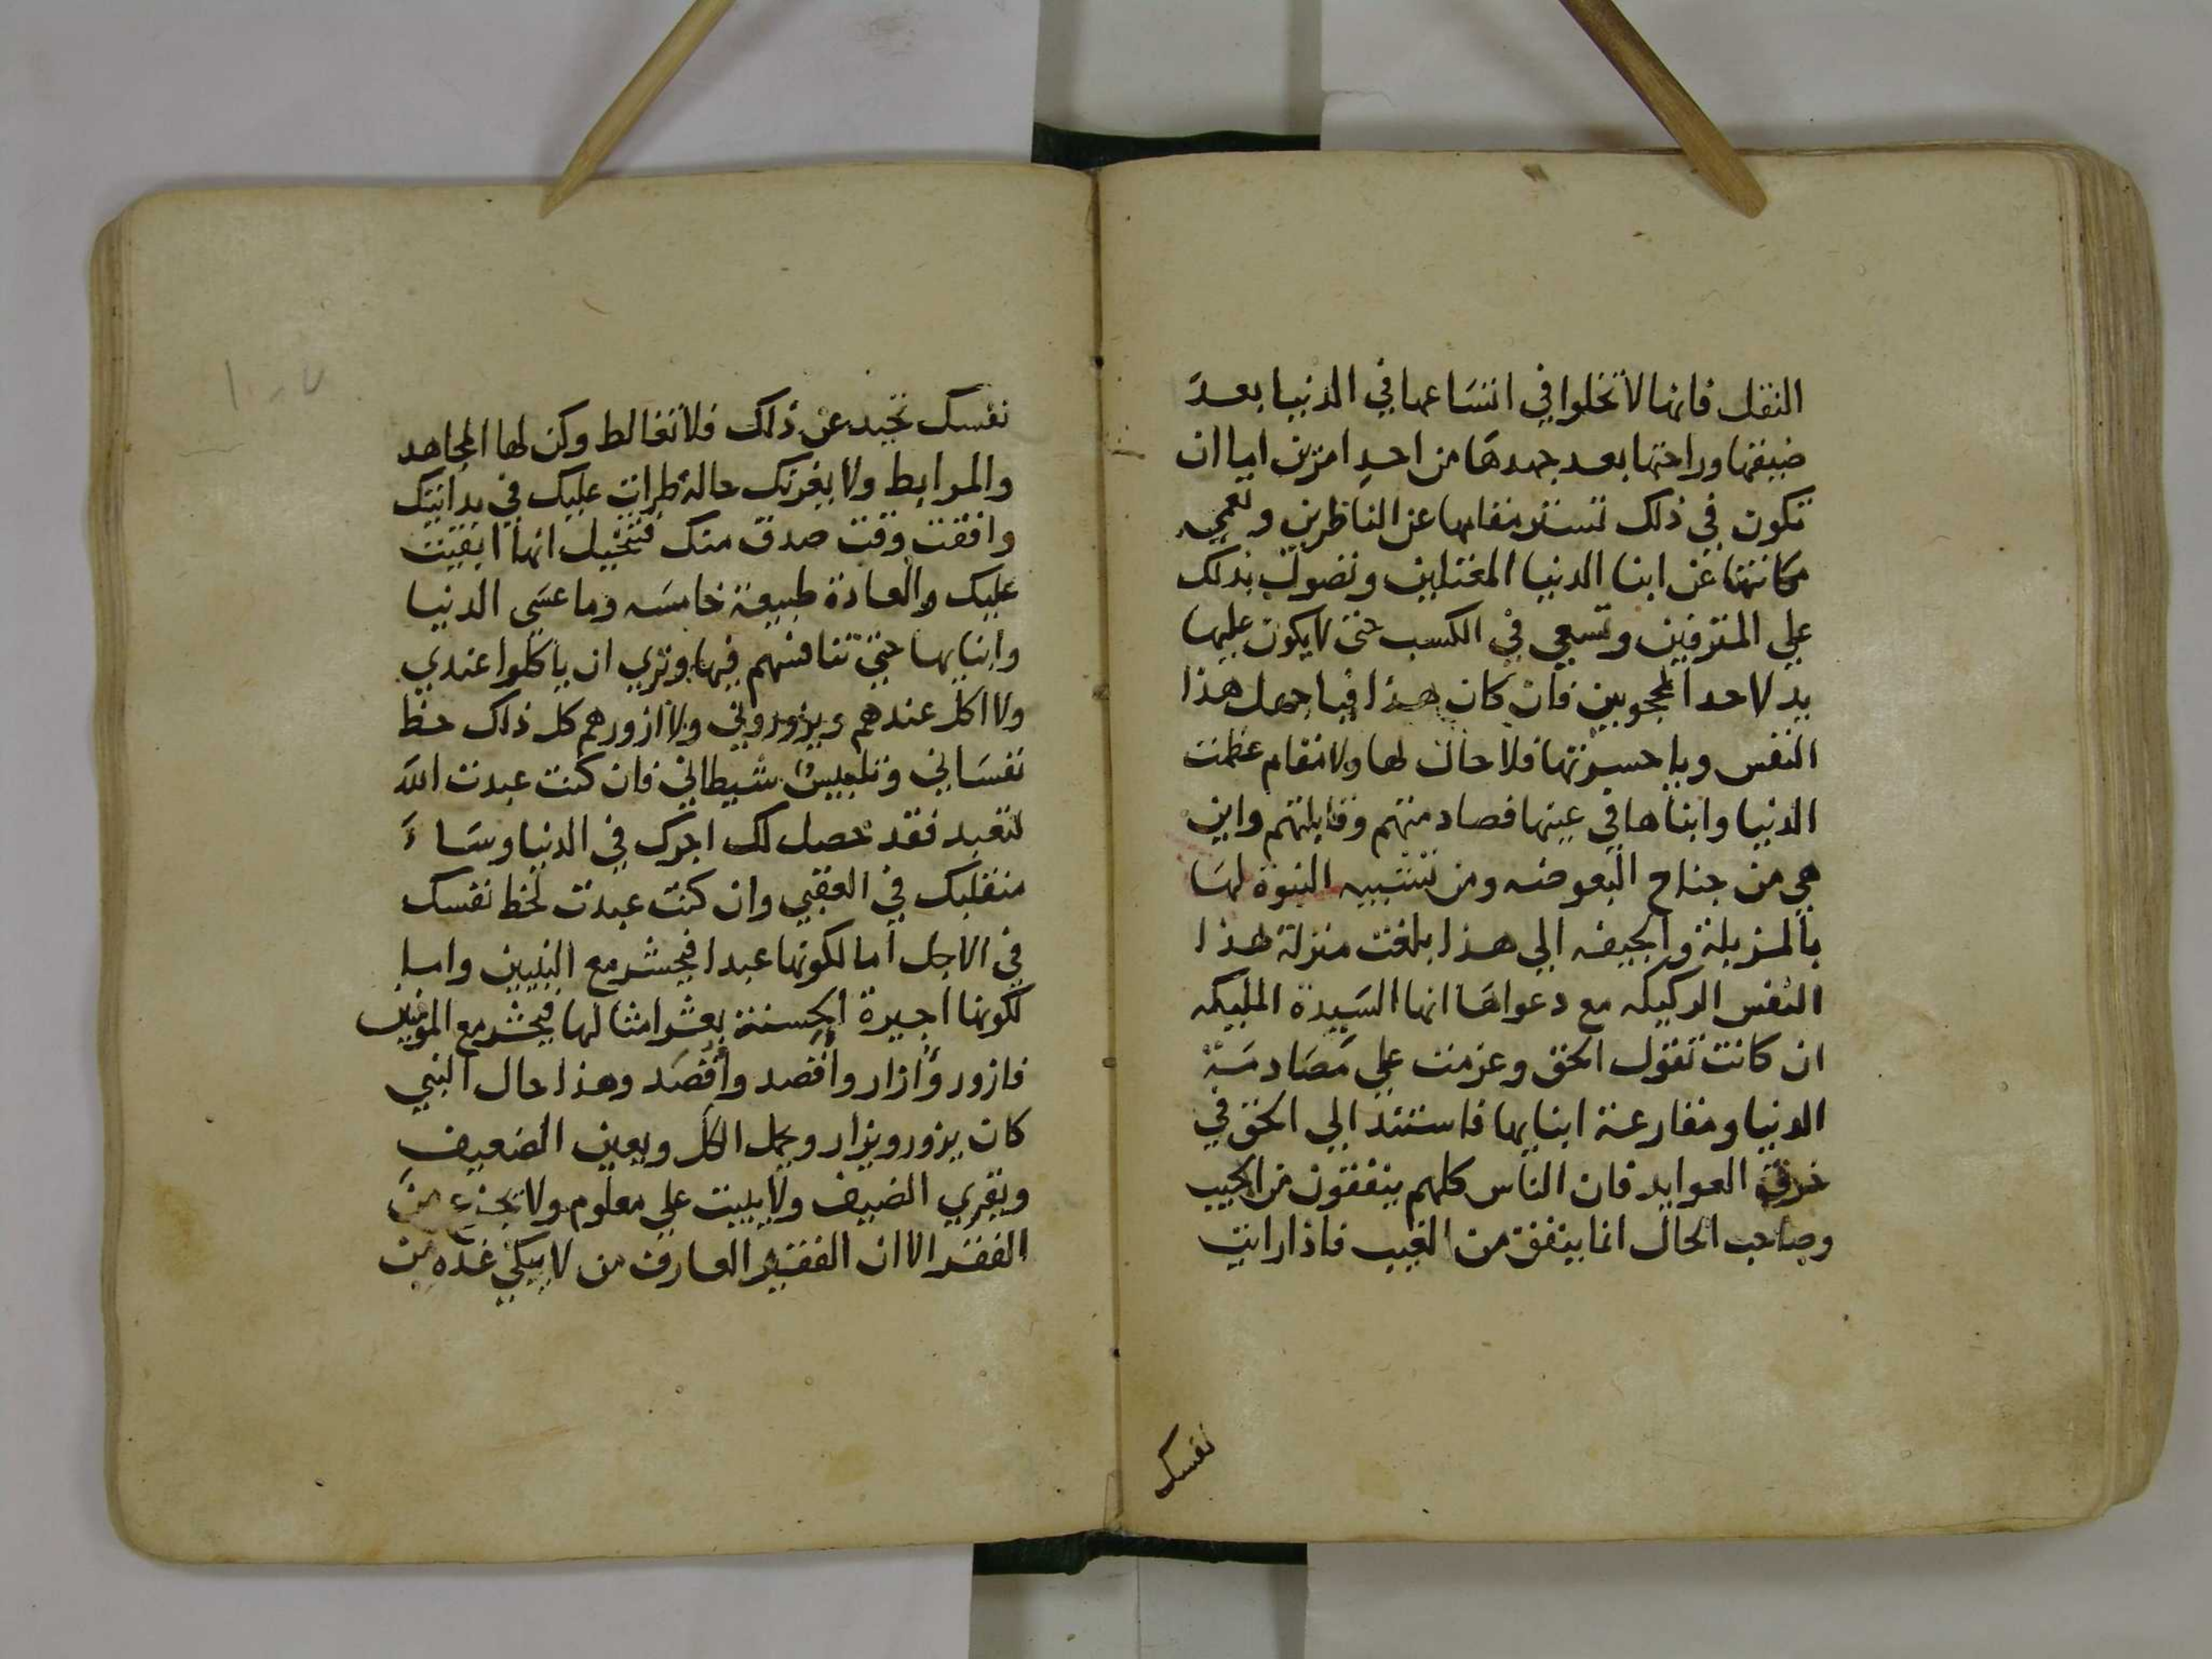 النقل فانها لا تخلوا في اتساعها في الدنيا بعد
ضيقها وراحتها بعد جهدها من احد امرين اما ان
تكون في ذلك تستر مقامها عن الناظرين وتعمي
مكانتها عن ابنا الدنيا المغترين وتصول بذلك
علي المترفين وتسعي في الكسب حتى لا يكون عليها
يد لاحد المحجوبين فان كان هذا فيا جهل هذا
النفس ويا حسرتها فلا حال لها ولا مقام عظمت
الدنيا وابناها في عينها فصادمتهم وقابلتهم واين
هي من جناح البعوضه ومن تشبيه النبوة لها
بالمزبلة والجيفه الي هذا بلغت منزلة هذا
النفس الركيكه مع دعواها انها السيدة المليكه
ان كانت تقول الحق وعزمت علي مصادمة
الدنيا ومقارعة ابنايها فاستند الي الحق في
خرق العوايد فان الناس كلهم ينفقون من الجيب
وصاحب الحال انما ينفق من الغيب فاذا رايت
نفسك
نفسك تحيد عن ذلك فلا تغالط وكن لها المجاهد
والمرابط ولا يغرنك حالة طرات عليك في بدايتك
وافقت وقت صدق منك فتتخيل انها ابقيت
عليك والعادة طبيعة خامسه وما عسى الدنيا
وابنايها حتى تنافسهم فيها وتري ان ياكلوا عندي
ولا اكل عندهم ويزوروني ولا ازورهم كل ذلك حظ
نفساني وتلبيس شيطاني فان كنت عبدت الله
لتعبد فقد حصل لك اجرك في الدنيا وساء
منقلبك في العقبي وان كنت عبدت لحظ نفسك
في الاجل اما لكونها عبدا فيحشر مع النبيين واما
لكونها اجيرة الحسنة بعشر امثالها فيحشر مع المومنين
فازور وأزار وأقصد وأقصد وهذا حال النبي
كان يزور ويزار ويحمل الكل ويعين الضعيف
ويقري الضيف ولا يبيت علي معلوم ولا يجزع من
الفقر الا ان الفقير العارف من لا يبكي غده من